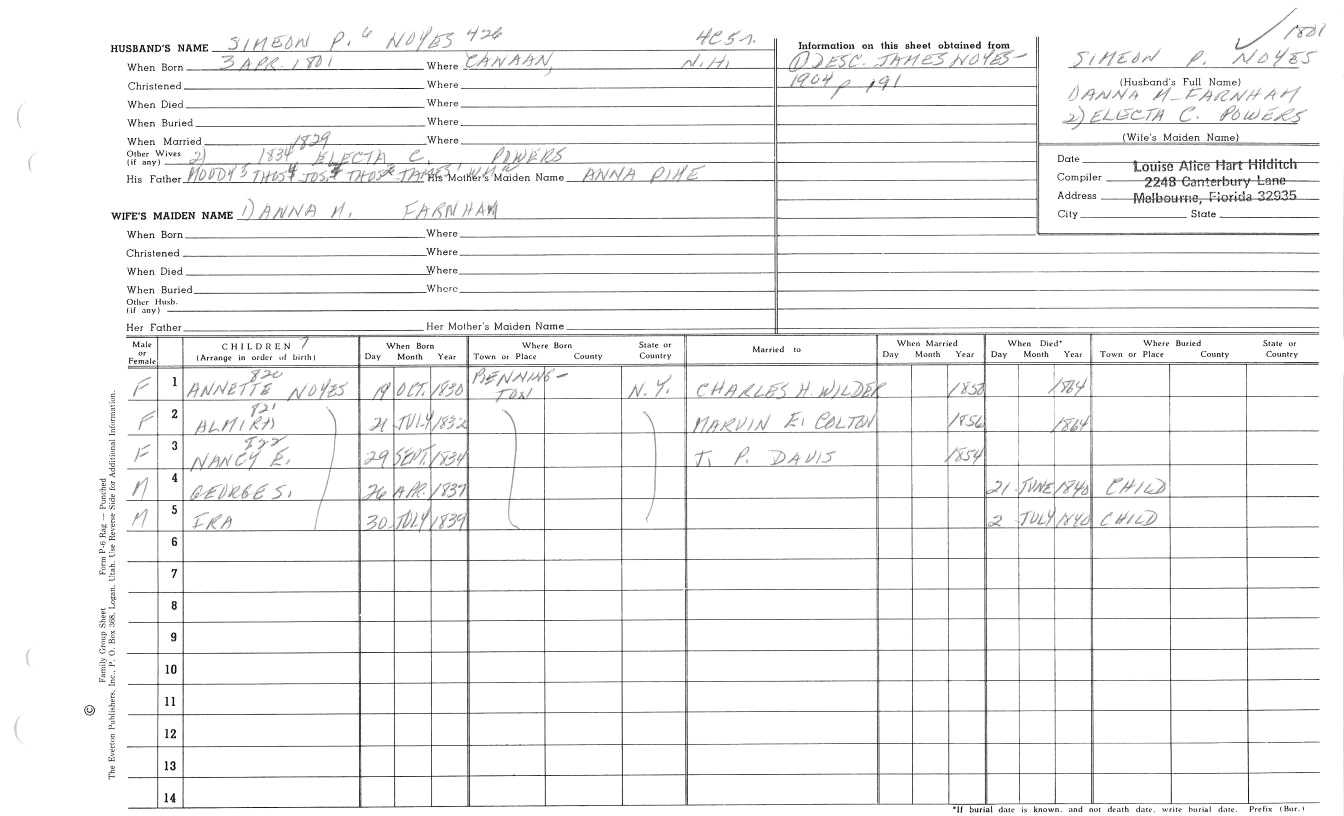 1801
HUSBAND'S NAME SIMEON P. 6 NOYES 426 4C5r.
When Born 3 APR. 1801 Where CANAAN, N.H.
Christened Where
When Died Where
When Buried Where
When Married 1829 Where
Other Wives (if any) 2) 1834 ELECTA C. POWERS
His Father MOODY5 THOS4 JOS. THOS JAMES His Mother's Maiden Name ANNA PIKE
WIFE'S MAIDEN NAME 1) ANNA M. FARNHAM
When Born Where
Christened Where
When Died Where
When Buried Where
Other Husb. (if any)
Her Father Her Mother's Maiden Name
Information on this sheet obtained from
① DESC. JAMES NOYES -
1904 p 191
SIMEON P. NOYES
(Husband's Full Name)
1) ANNA M. FARNHAM
2) ELECTA C. POWERS
(Wife's Maiden Name)
Date
Compiler Louise Alice Hart Hilditch
Address 2248 Canterbury Lane
Melbourne, Florida 32935
City State
Male or Female CHILDREN 7 (Arrange in order of birth) When Born Day Month Year Where Born Town or Place County State or Country Married to When Married Day Month Year When Died* Day Month Year Where Buried Town or Place County State or Country
F 1 820 ANNETTE NOYES 19 OCT. 1830 BENNING-TON N.Y. CHARLES H. WILDER 1850 1864
F 2 821 ALMIRA 21 JULY 1832 MARVIN E. COLTON 1856 1864
F 3 822 NANCY E. 29 SEPT. 1834 T. P. DAVIS 1854
M 4 GEORGE S. 26 APR. 1837 21 JUNE 1840 CHILD
M 5 IRA 30 JULY 1839 2 JULY 1840 CHILD
6
7
8
9
10
11
12
13
14
*If burial date is known, and not death date, write burial date. Prefix (Bur.)
Family Group Sheet Form P-6 Rag — Punched
© The Everton Publishers, Inc., P. O. Box 368, Logan, Utah. Use Reverse Side for Additional Information.